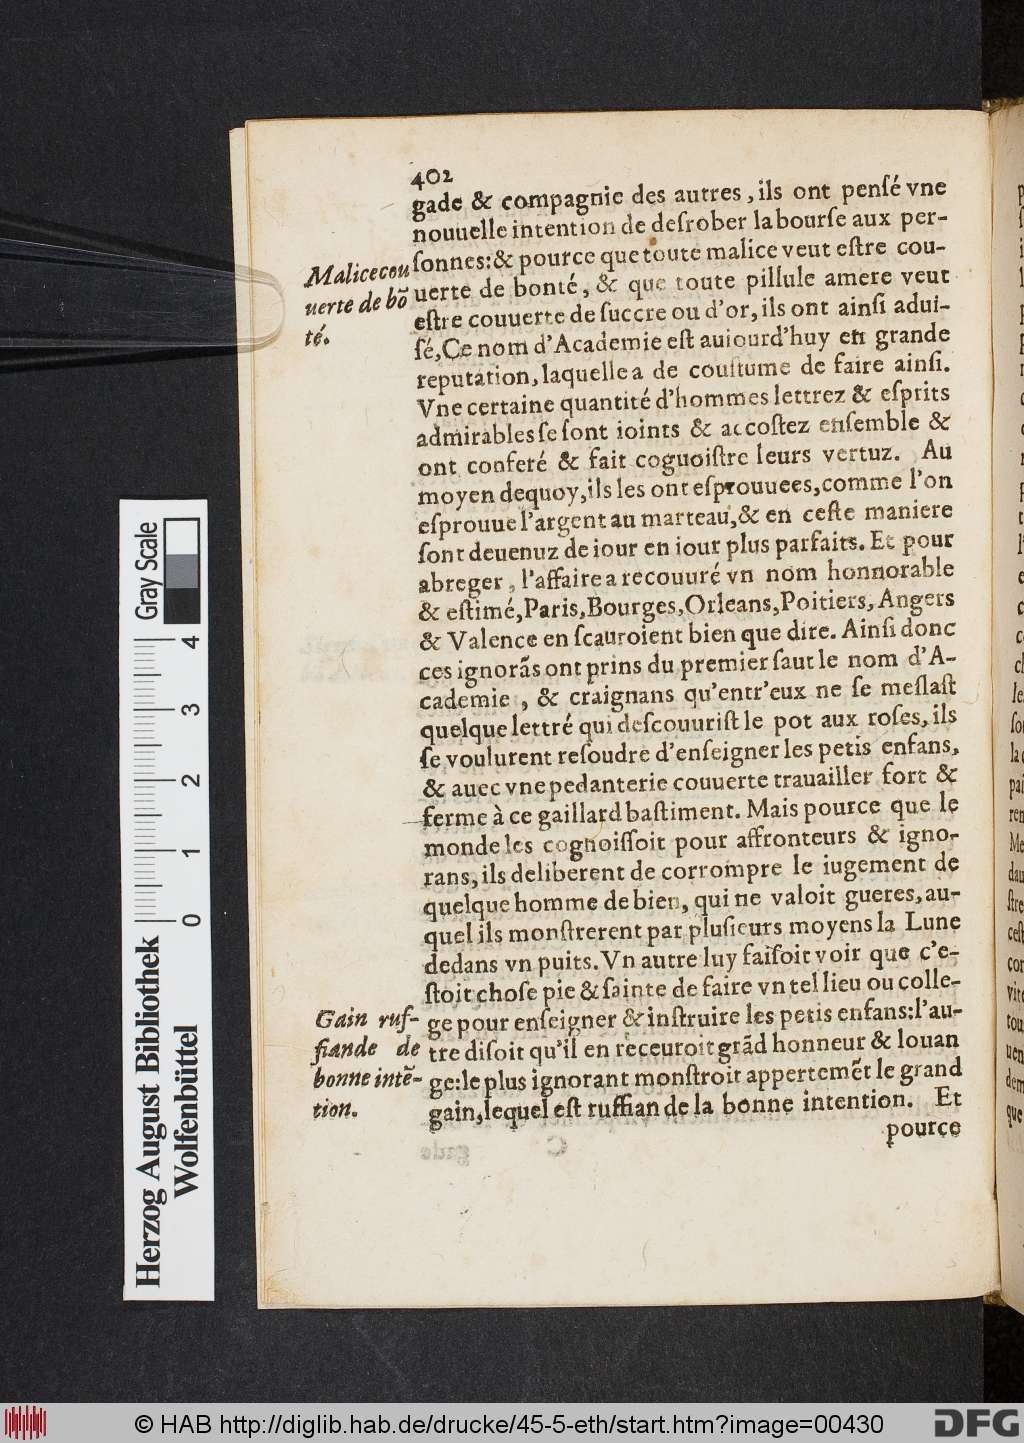 402
gade & compagnie des autres, ils ont penſé vne
nouuelle intention de deſrober la bourſe aux per-
ſonnes: & pource que toute malice veut eſtre cou-
uerte de bonté, & que toute pillule amere veut
eſtre couuerte de ſuccre ou d'or, ils ont ainſi adui-
ſé, Ce nom d'Academie eſt auiourd'huy en grande
reputation, laquelle a de couſtume de faire ainſi.
Vne certaine quantité d'hommes lettrez & eſprits
admirables ſe ſont ioints & accoſtez enſemble &
ont conferé & fait coguoiſtre leurs vertuz. Au
moyen dequoy, ils les ont eſprouuees, comme l'on
eſprouue l'argent au marteau, & en ceſte maniere
ſont deuenuz de iour en iour plus parfaits. Et pour
abreger, l'affaire a recouuré vn nom honnorable
& eſtimé, Paris, Bourges, Orleans, Poitiers, Angers
& Valence en ſcauroient bien que dire. Ainſi donc
ces ignorãs ont prins du premier ſaut le nom d'A-
cademie, & craignans qu'entr'eux ne ſe meſlaſt
quelque lettré qui deſcouuriſt le pot aux roſes, ils
ſe voulurent reſoudre d'enſeigner les petis enfans,
& auec vne pedanterie couuerte trauailler fort &
ferme à ce gaillard baſtiment. Mais pource que le
monde les cognoiſſoit pour affronteurs & igno-
rans, ils deliberent de corrompre le iugement de
quelque homme de bien, qui ne valoit gueres, au-
quel ils monſtrerent par pluſieurs moyens la Lune
dedans vn puits. Vn autre luy faiſoit voir que c'e-
ſtoit choſe pie & ſainte de faire vn tel lieu ou colle-
ge pour enſeigner & inſtruire les petis enfans: l'au-
tre diſoit qu'il en receuroit grãd honneur & louan
ge: le plus ignorant monſtroit appertemẽt le grand
gain, lequel eſt ruffian de la bonne intention. Et
pource
Malice cou
uerte de bõ
té.
Gain ruf-
fiande de
bonne intẽ-
tion.
Gray Scale
0 1 2 3 4
Herzog August Bibliothek
Wolfenbüttel
© HAB http://diglib.hab.de/drucke/45-5-eth/start.htm?image=00430
DFG